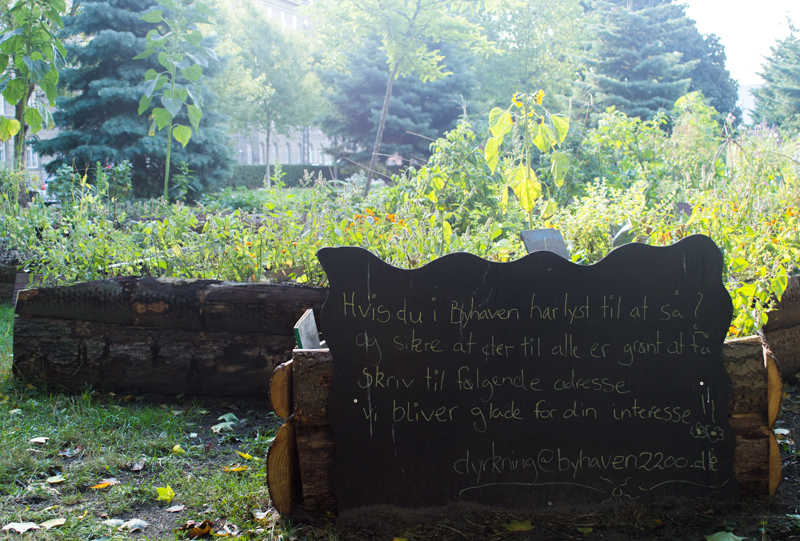 Hvis du i Byhaven har lyst til at så?
og sikre at der til alle er grønt at få
Skriv til følgende adresse
vi bliver glade for din interesse!!
dyrkning@byhaven2200.dk